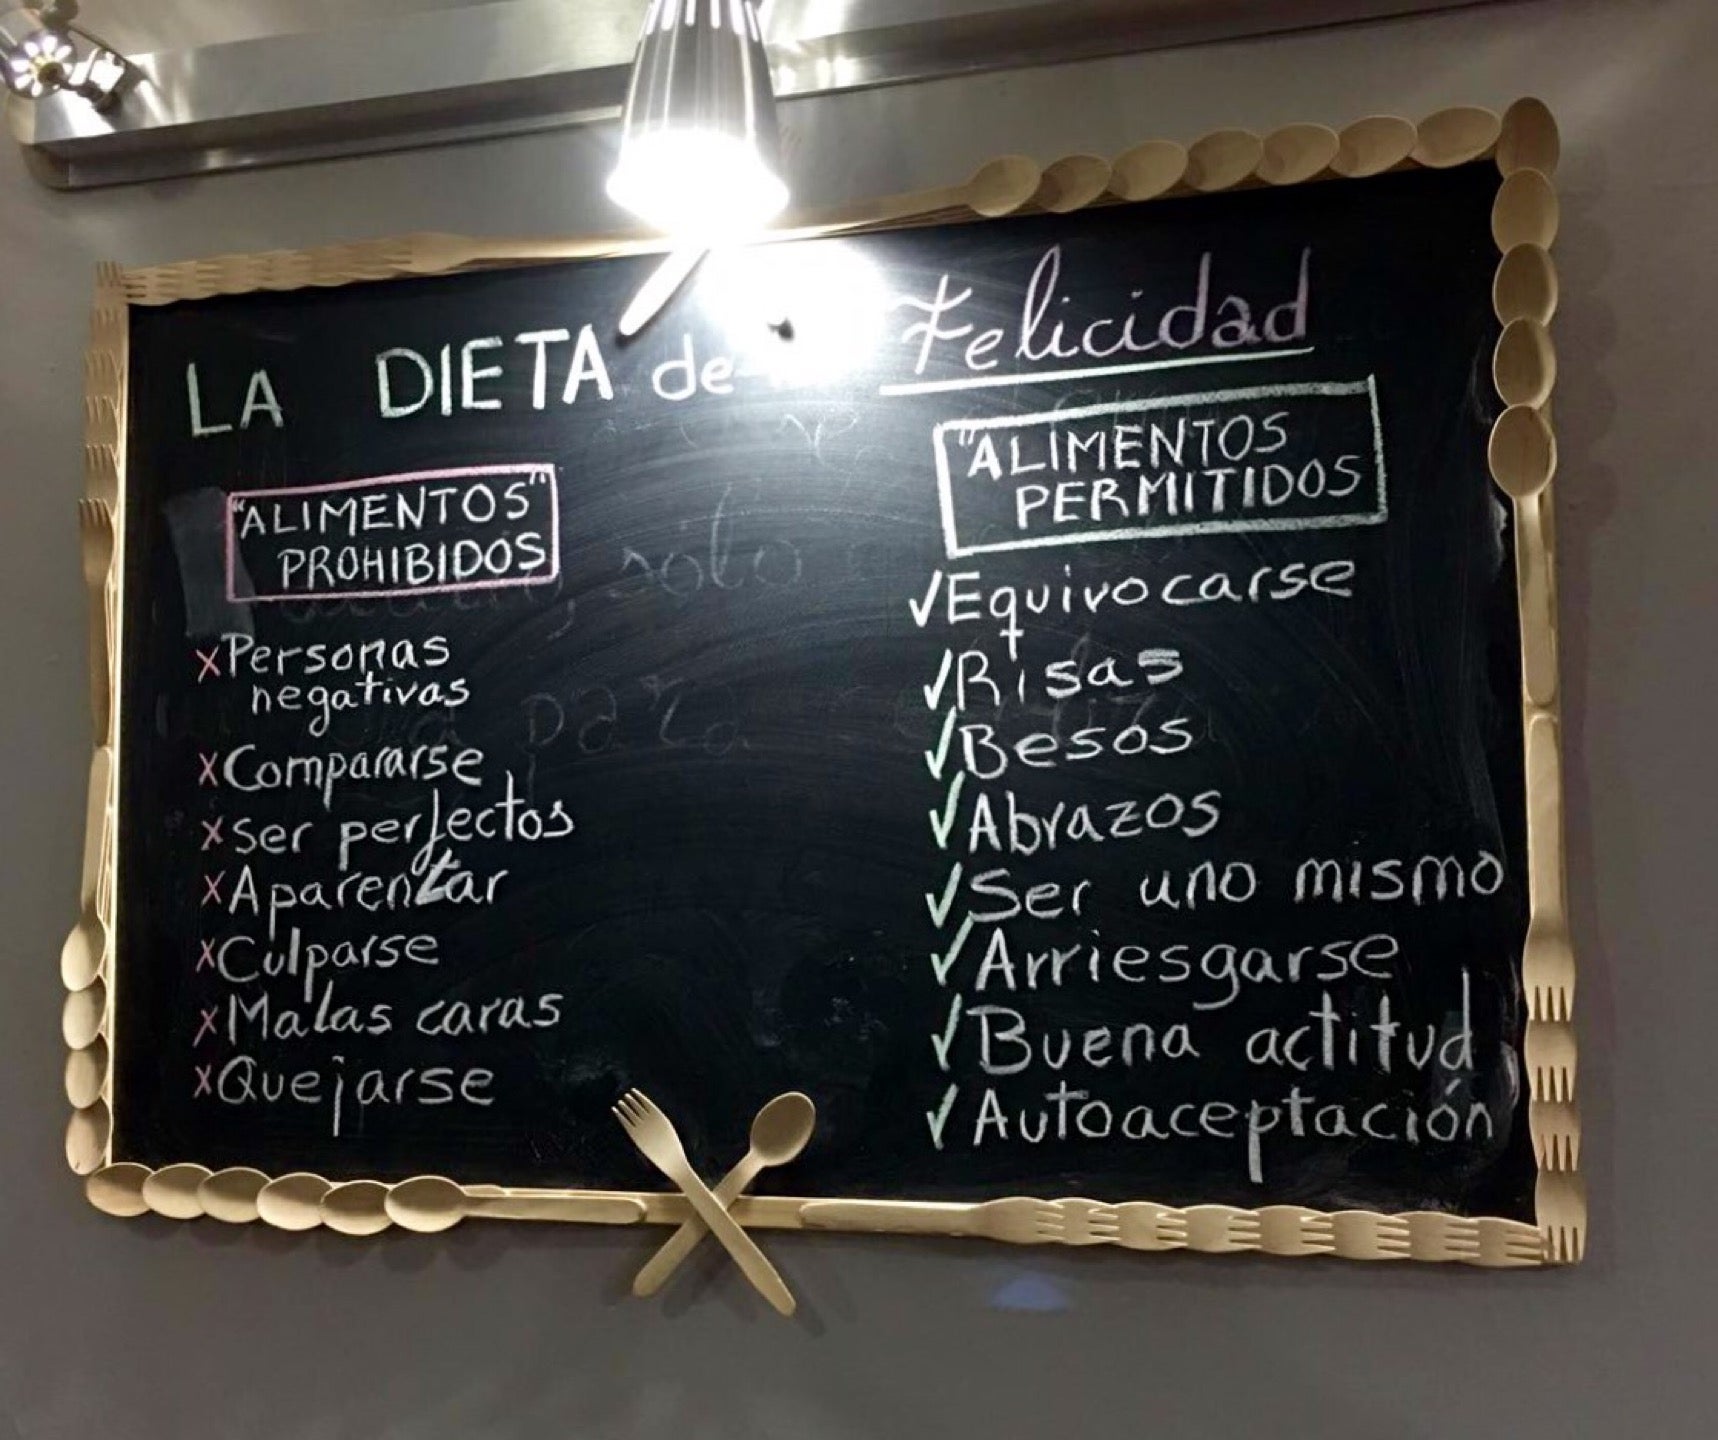 LA DIETA de Felicidad
"ALIMENTOS"
PROHIBIDOS
x Personas
negativas
x Compararse
x Ser perfectos
x Aparentar
x Culparse
x Malas caras
x Quejarse
"ALIMENTOS
PERMITIDOS
√ Equivocarse
√ Risas
√ Besos
√ Abrazos
√ Ser uno mismo
√ Arriesgarse
√ Buena actitud
√ Autoaceptación